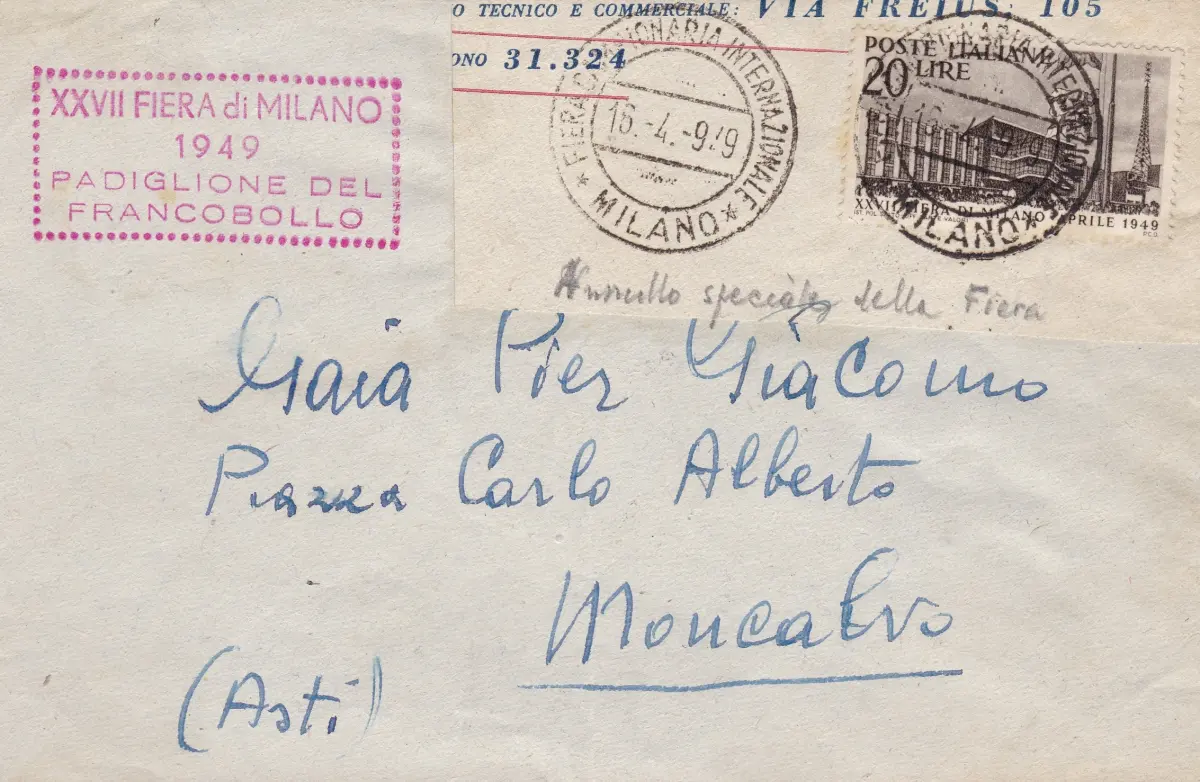 O TECNICO E COMMERCIALE: VIA FREIUS, 105
ONO 31.324
XXVII FIERA di MILANO
1949
PADIGLIONE DEL
FRANCOBOLLO
FIERA INTERNAZIONALE
16.-4.-949
* MILANO *
POSTE ITALIANE
20 LIRE
XXVII FIERA DI MILANO APRILE 1949
MILANO
speciale della Fiera
Gaia Pier Giacomo
Piazza Carlo Alberto
Moncalvo
(Asti)